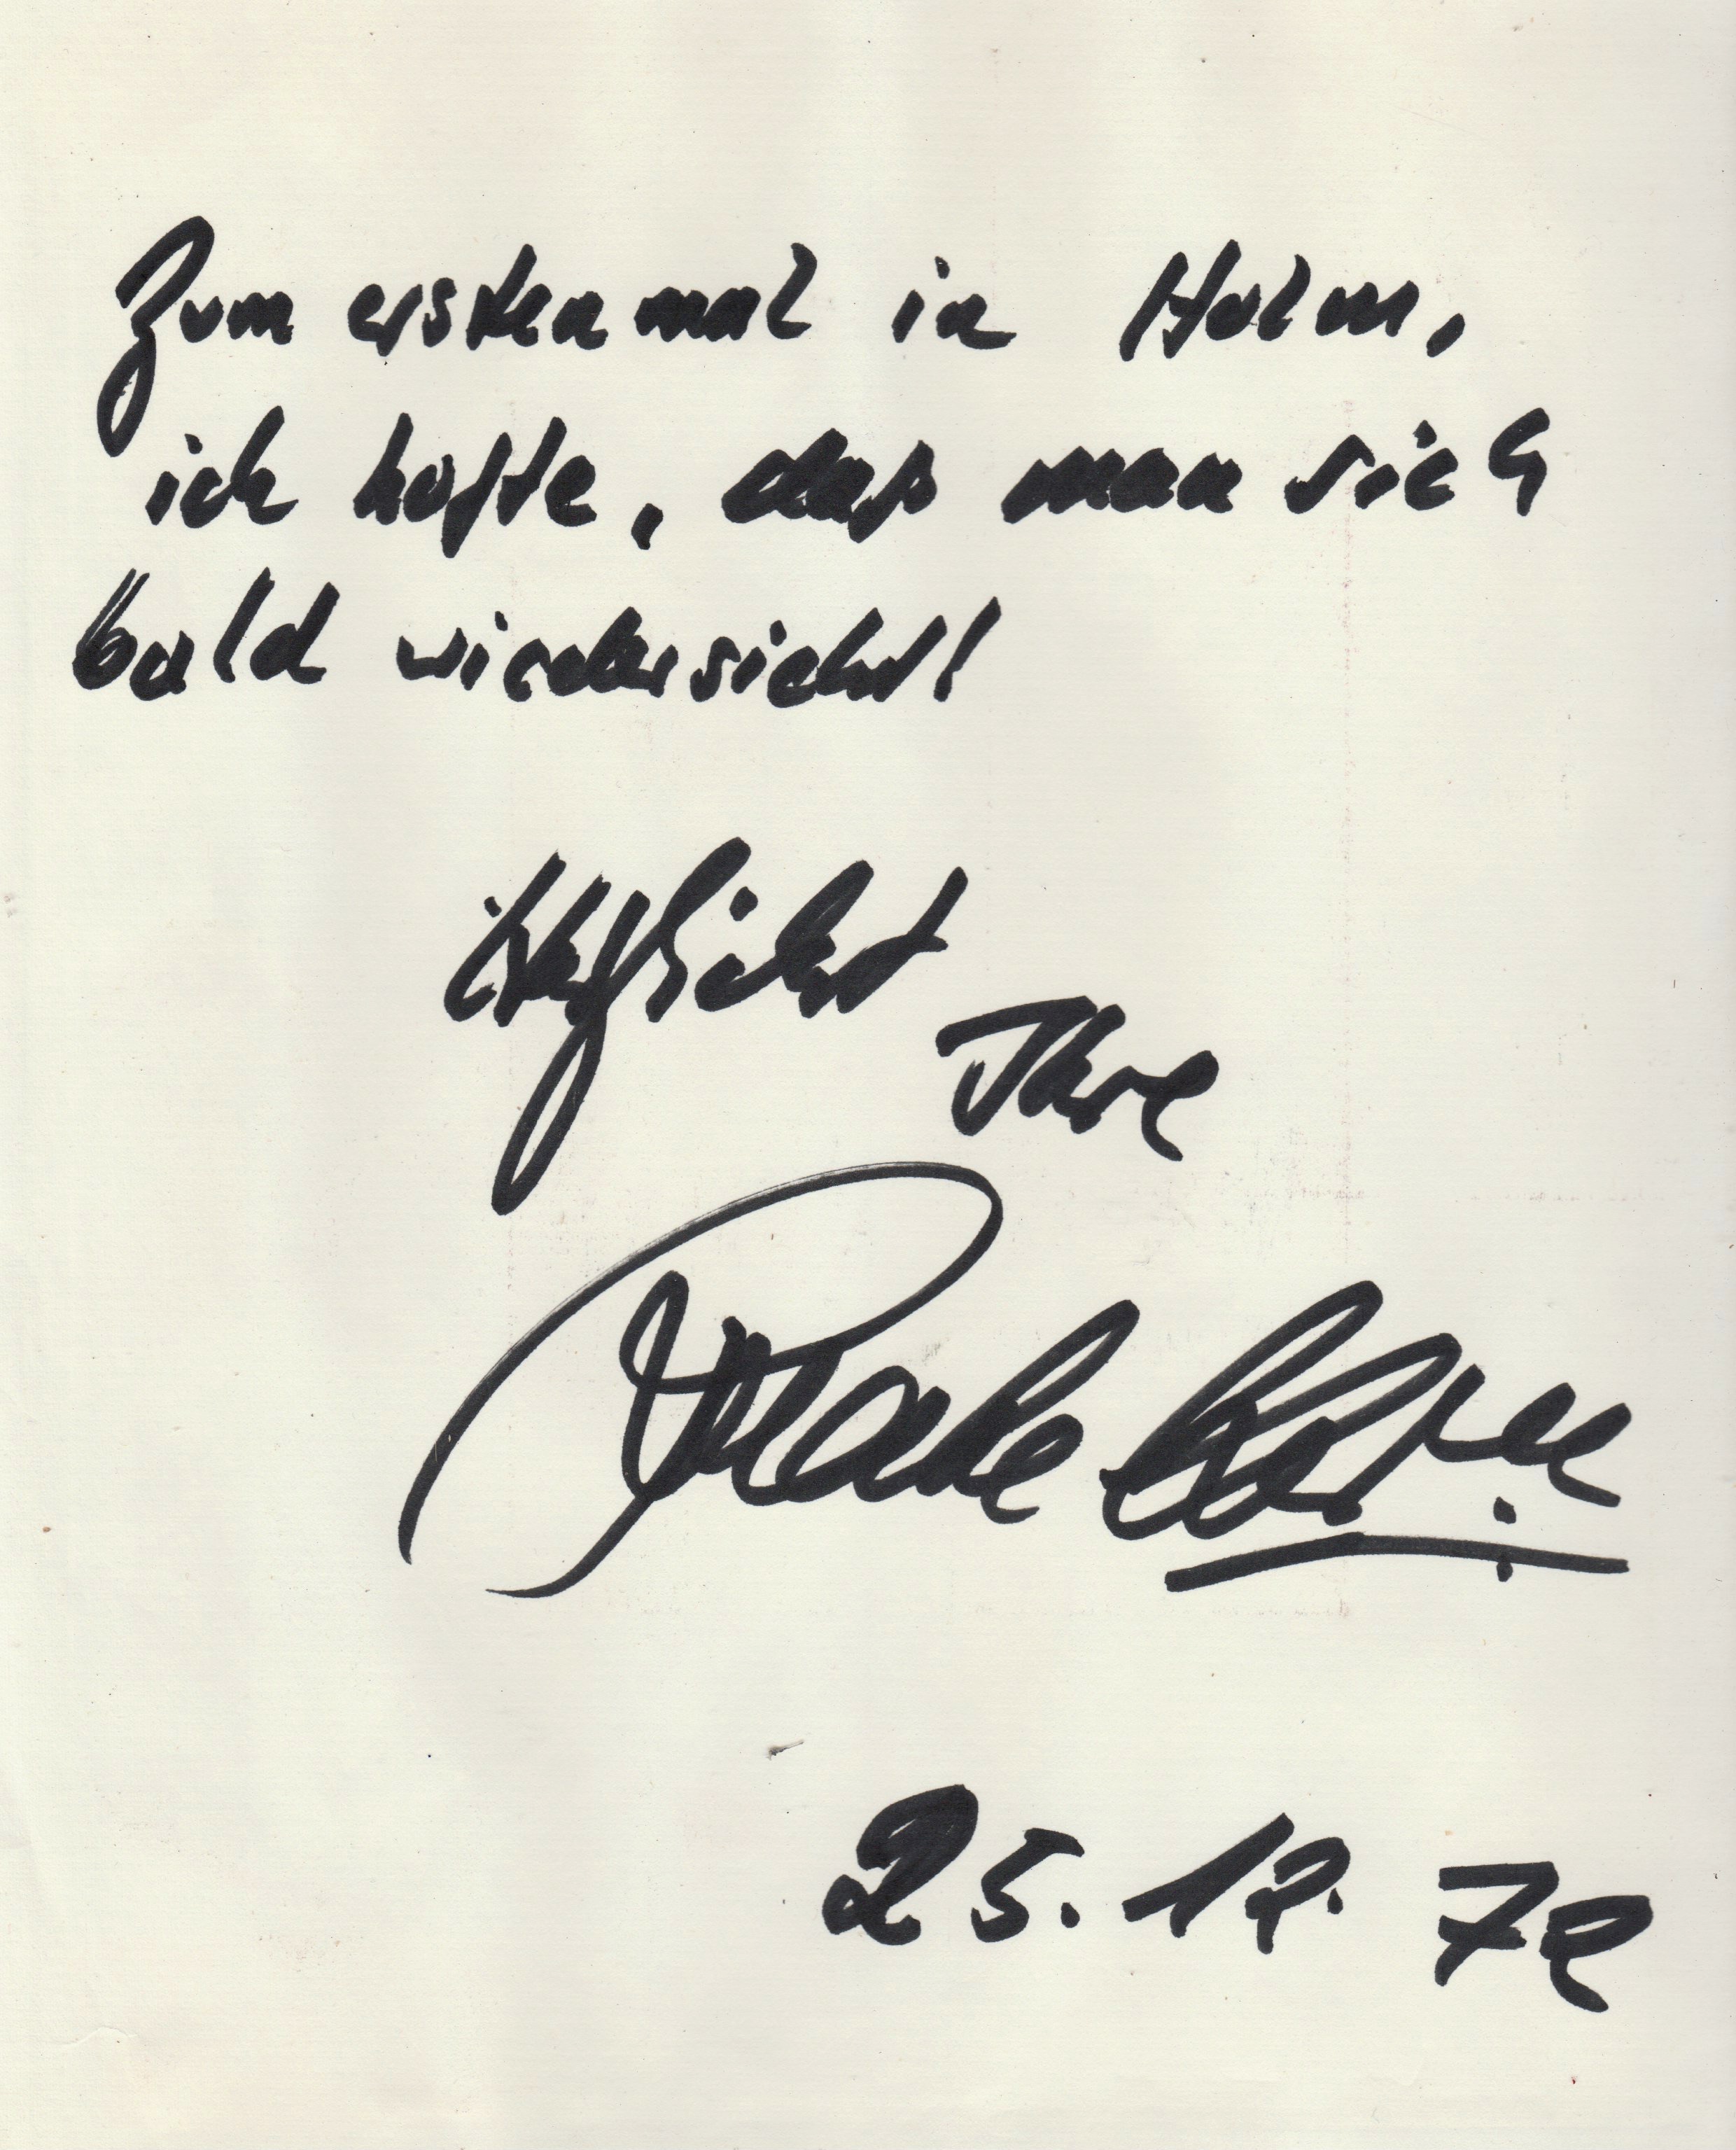 Zum erstenmal in Holm,
ich hoffe, daß man sich
bald wiedersieht!
Herzlichst
Ihre
25. 12. 72